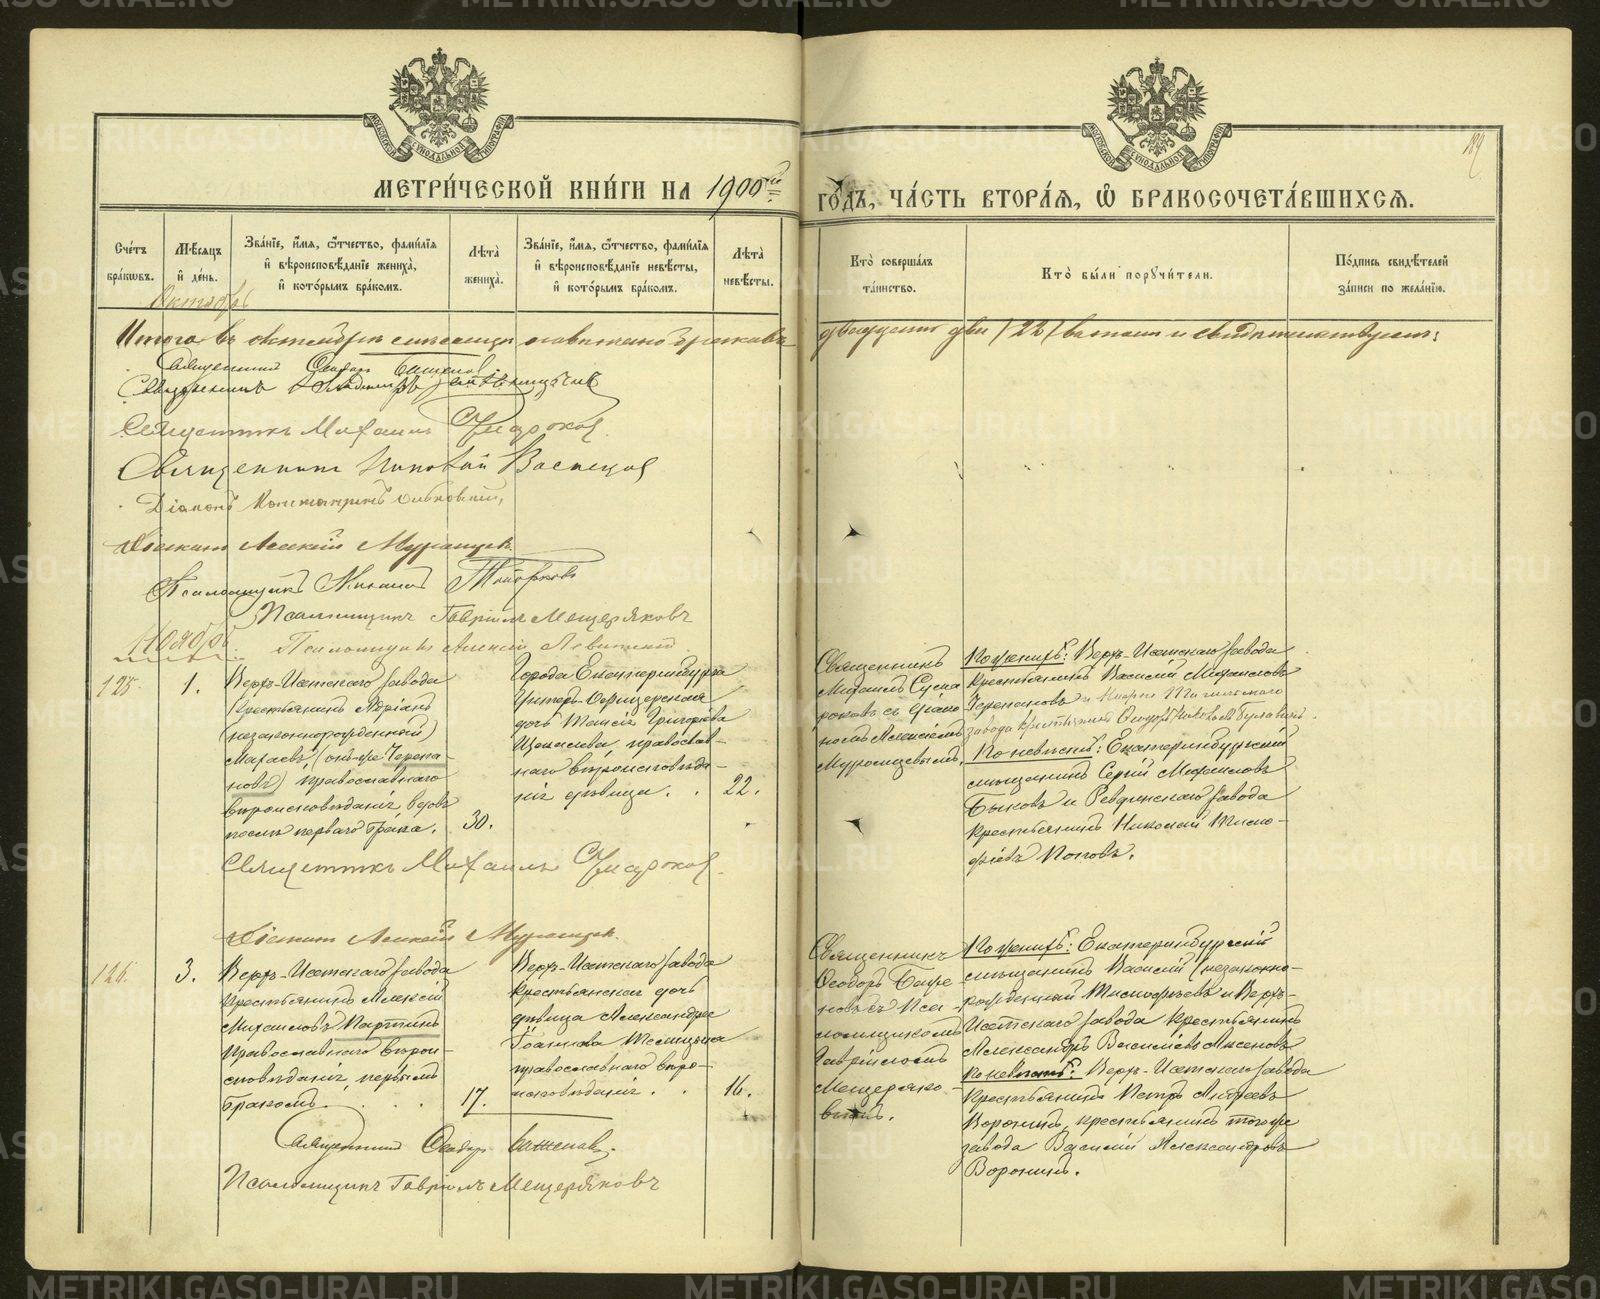 МЕТРИ́ЧЕСКОЙ КНИ́ГИ НА 1900ый
ГО́ДЪ, ЧА́СТЬ ВТОРА́Я, Ѿ БРАКОСОЧЕТА́ВШИХСЯ.
Сче́тъ бра́кѡвъ.
Мѣ́сяцъ и҆ де́нь.
Зва́нїе, и҆́мя, ѻ҆́тчество, фами́лїя и҆ вѣроисповѣ́данїе жениха̀, и҆ кото́рымъ бра́комъ.
Лѣта̀ жениха̀.
Зва́нїе, и҆́мя, ѻ҆́тчество, фами́лїя и҆ вѣроисповѣ́данїе невѣ́сты, и҆ кото́рымъ бра́комъ.
Лѣта̀ невѣ́сты.
Кто̀ соверша́лъ та́инство.
Кто̀ бы́ли порꙋчи́тели.
По́дпись свидѣ́телей за́писи по жела́нїю.
Октябрь
Итого въ октябрѣ мѣсяцѣ браковъ
двадцать два /22/
Священникъ Ѳеодоръ Баженовъ
Священникъ Владиміръ
Священникъ Михаилъ Сушроковъ
Священникъ Николай Васнецовъ
Діаконъ Константинъ
Діаконъ Алексій Муромцевъ
Псаломщикъ Михаилъ
Псаломщикъ Гавріилъ Мещеряковъ
Ноябрь.
Псаломщикъ Алексій Левитскій
125.
1.
Верхъ-Исетскаго завода
крестьянинъ Адріанъ
(незаконнорожденный)
(онъ-же Черепа-
новъ) православнаго
вѣроисповѣданія, вдовъ
послѣ перваго брака.
30.
Города Екатеринбурга
Унтеръ-Офицерская
дочь Таисія Григорьева
православ-
наго вѣроисповѣда-
нія дѣвица.
22.
Священникъ
Михаилъ
съ діако-
номъ Алексіемъ
Муромцевымъ.
По женихѣ: Верхъ-Исетскаго завода
крестьянинъ Василій Михаиловъ
Черепановъ и Нижне Тагильскаго
завода крестьянинъ Ѳеодоръ
По невѣстѣ: Екатеринбургскій
мѣщанинъ Сергій Михаиловъ
Быковъ и Ревдинскаго завода
крестьянинъ Николай Тимо-
фіевъ Поповъ.
Священникъ Михаилъ
Діаконъ Алексій Муромцевъ.
126.
3.
Верхъ-Исетскаго завода
крестьянинъ Алексій
Михаиловъ Партинъ
православнаго вѣрои-
сповѣданія, первымъ
бракомъ.
17.
Верхъ-Исетскаго завода
крестьянская дочь
дѣвица Александра
Іоаннова
православнаго вѣро-
исповѣданія.
16.
Священникъ
Ѳеодоръ Баже-
новъ съ Пса-
ломщикомъ
Гавріиломъ
Мещеряко-
вымъ.
По женихѣ: Екатеринбургскій
мѣщанинъ Василій (незаконно-
рожденный) Тимофѣевъ и Верхъ-
Исетскаго завода крестьянинъ
Александръ Василіевъ Аксеновъ
По невѣстѣ: Верхъ-Исетскаго завода
крестьянинъ Петръ Андреевъ
Воронинъ, крестьянинъ того же
завода Василій Александровъ
Воронинъ.
Священникъ Ѳеодоръ Баженовъ.
Псаломщикъ Гавріилъ Мещеряковъ
METRIKI.GASO-URAL.RU